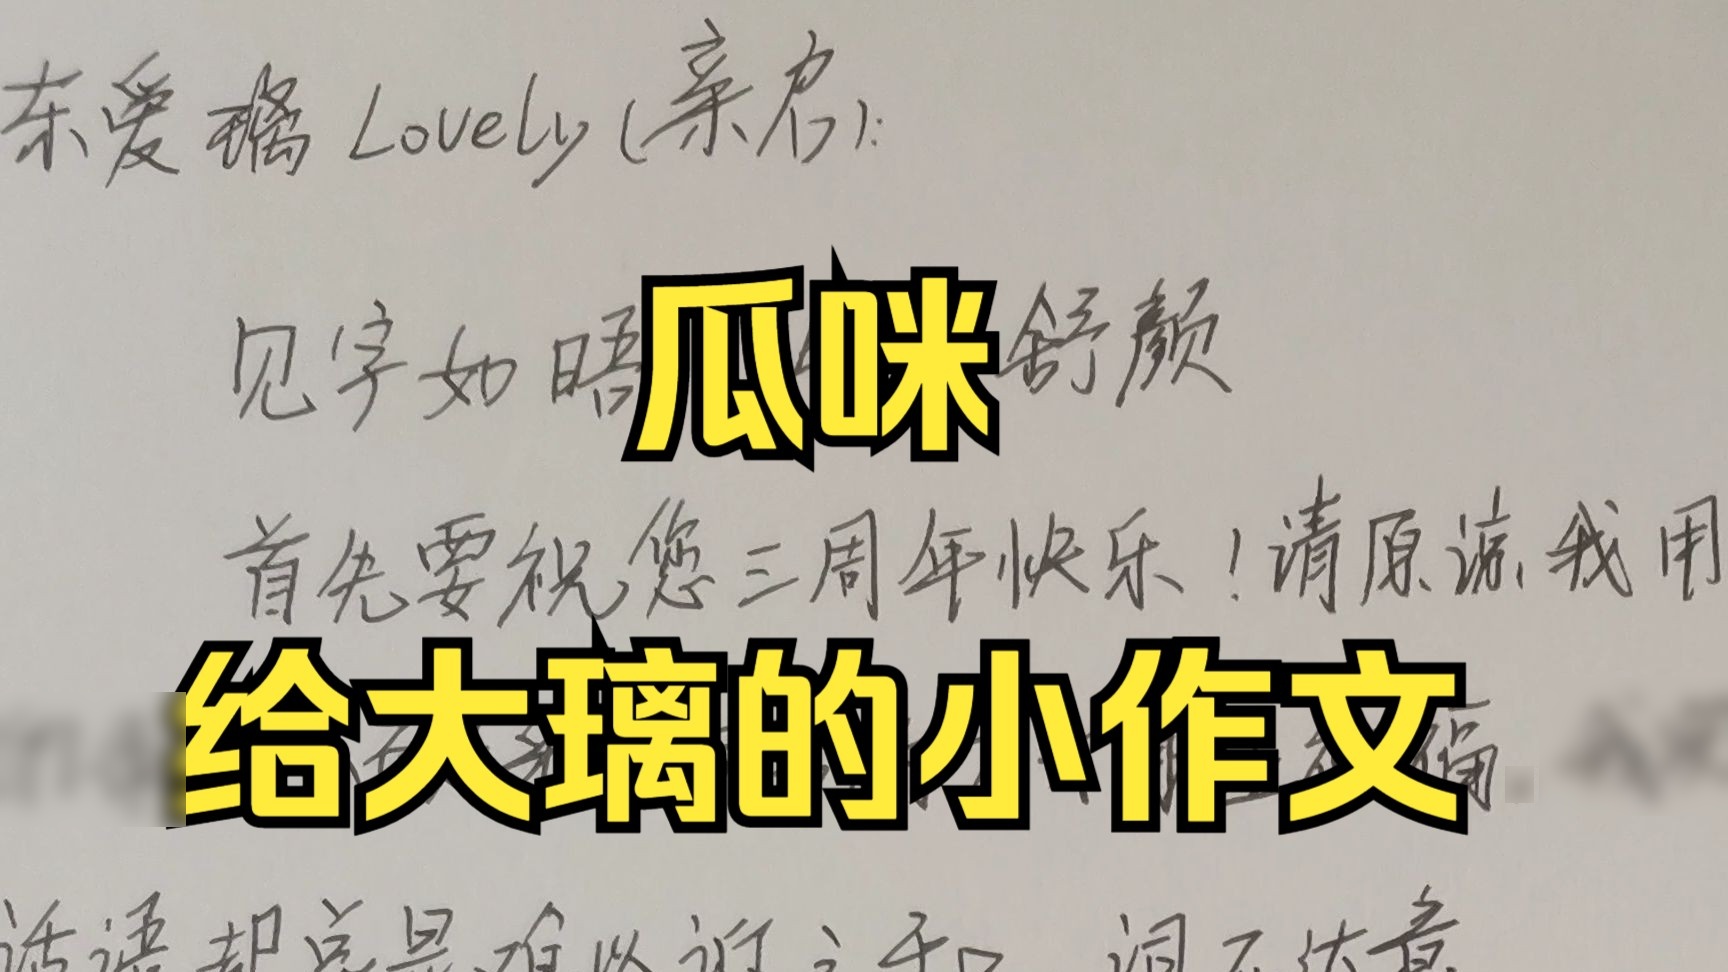 东爱璃 Lovely (亲启):
见字如晤 舒颜
瓜咪
首先要祝您三周年快乐！请原谅我用
给大璃的小作文
话语却总是难以诉之于口 词不达意